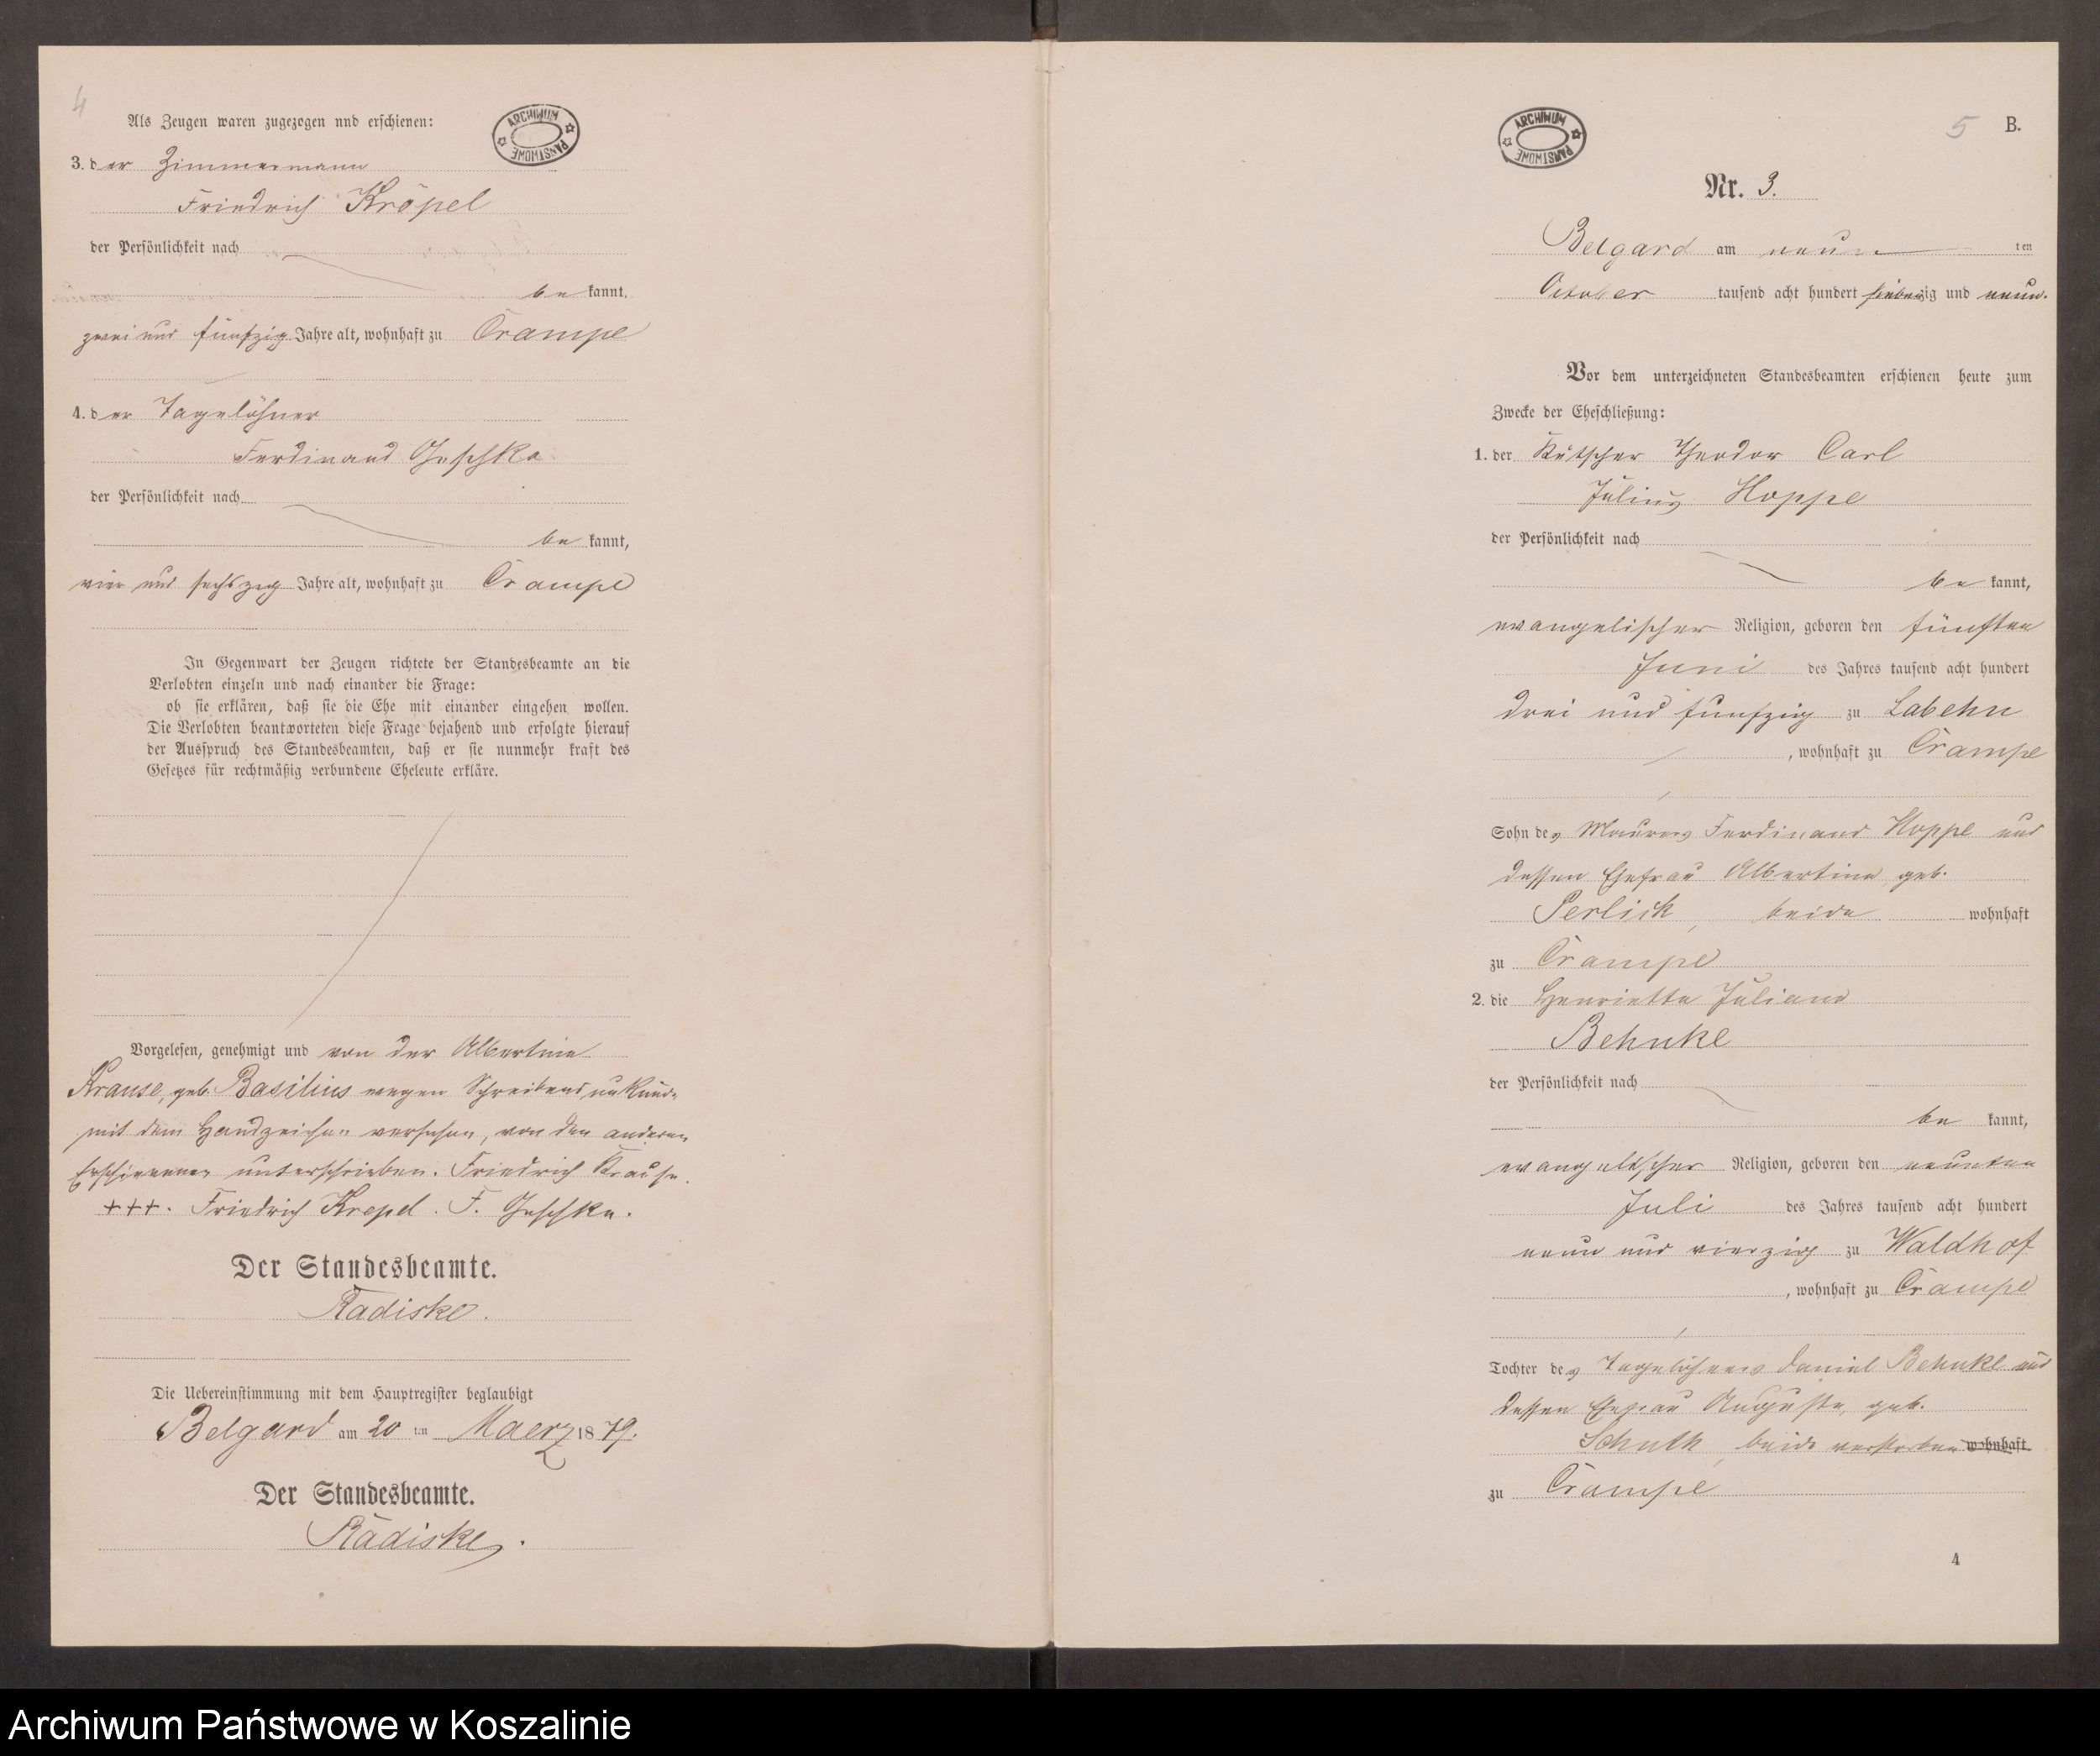 4
Als Zeugen waren zugezogen und erschienen:
ARCHIWUM PAŃSTWOWE
3. der Zimmermann
Friedrich Kröpel
der Persönlichkeit nach
be kannt,
zwei und fünfzig Jahre alt, wohnhaft zu Crampe
4. der Tagelöhner
Ferdinand Geschke
der Persönlichkeit nach
be kannt,
vier und sechszig Jahre alt, wohnhaft zu Crampe
In Gegenwart der Zeugen richtete der Standesbeamte an die
Verlobten einzeln und nach einander die Frage:
ob sie erklären, daß sie die Ehe mit einander eingehen wollen.
Die Verlobten beantworteten diese Frage bejahend und erfolgte hierauf
der Ausspruch des Standesbeamten, daß er sie nunmehr kraft des
Gesetzes für rechtmäßig verbundene Eheleute erkläre.
Vorgelesen, genehmigt und von der Albertine
Krause, geb. Basilius wegen Schreibens unkund-
mit dem Handzeichen versehen, von den anderen
Erschienenen unterschrieben. Friedrich Krause.
+++. Friedrich Krepel. F. Geschke.
Der Standesbeamte.
Radiske.
Die Uebereinstimmung mit dem Hauptregister beglaubigt
Belgard am 20 ten Maerz 1879.
Der Standesbeamte.
Radiske.
ARCHIWUM PAŃSTWOWE
5 B.
Nr. 3.
Belgard am neun ten
October tausend acht hundert siebenzig und neun.
Vor dem unterzeichneten Standesbeamten erschienen heute zum
Zwecke der Eheschließung:
1. der Kutscher Theodor Carl
Julius Hoppe
der Persönlichkeit nach
be kannt,
evangelischer Religion, geboren den fünften
Juni des Jahres tausend acht hundert
drei und funfzig zu Labehn
, wohnhaft zu Crampe
Sohn des Maurers Ferdinand Hoppe und
dessen Ehefrau Albertine geb.
Perlick, beide wohnhaft
zu Crampe
2. die Henriette Juliane
Behnke
der Persönlichkeit nach
be kannt,
evangelischer Religion, geboren den neunten
Juli des Jahres tausend acht hundert
neun und vierzig zu Waldhof
, wohnhaft zu Crampe
Tochter des Tagelöhners Daniel Behnke und
dessen Ehefrau Auguste, geb.
Schuth, beide verstorben wohnhaft
zu Crampe
4
Archiwum Państwowe w Koszalinie